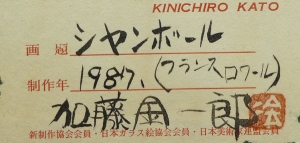 KINICHIRO KATO
画題 シャンボール
制作年 1987. (フランスロワール)
加藤金一郎
新制作協会会員・日本ガラス絵協会会員・日本美術家連盟会員